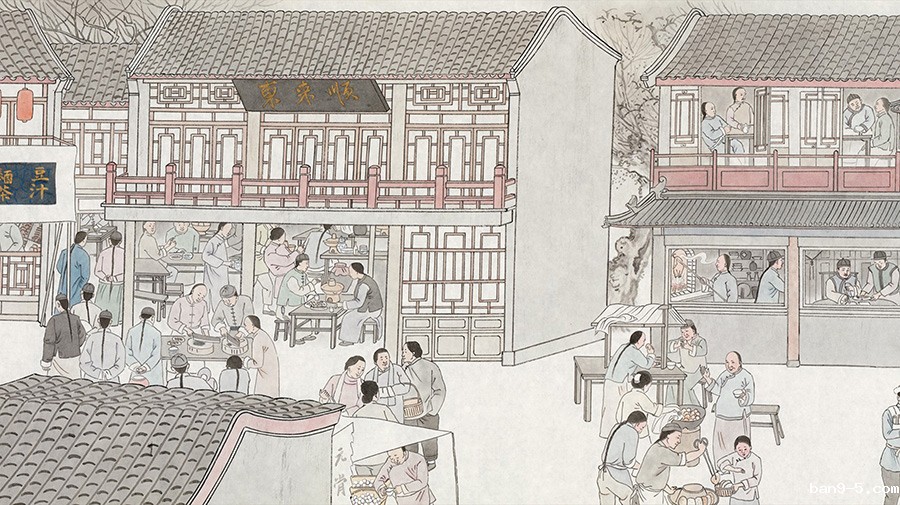 順來聚
豆汁
麵茶
元宵
ban9-5.com